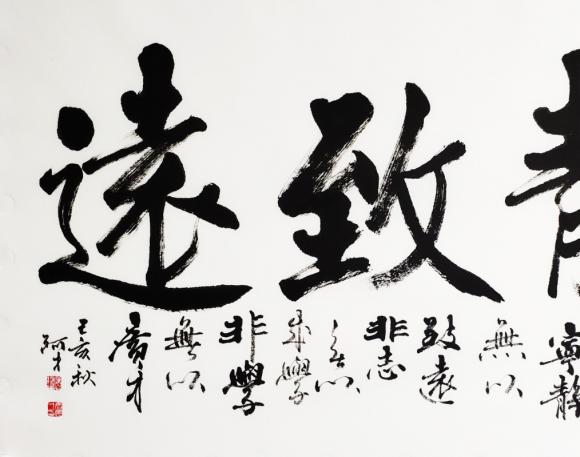 致遠
寧靜
無以
致遠
非志
無以
成學
非學
無以
廣才
己亥秋